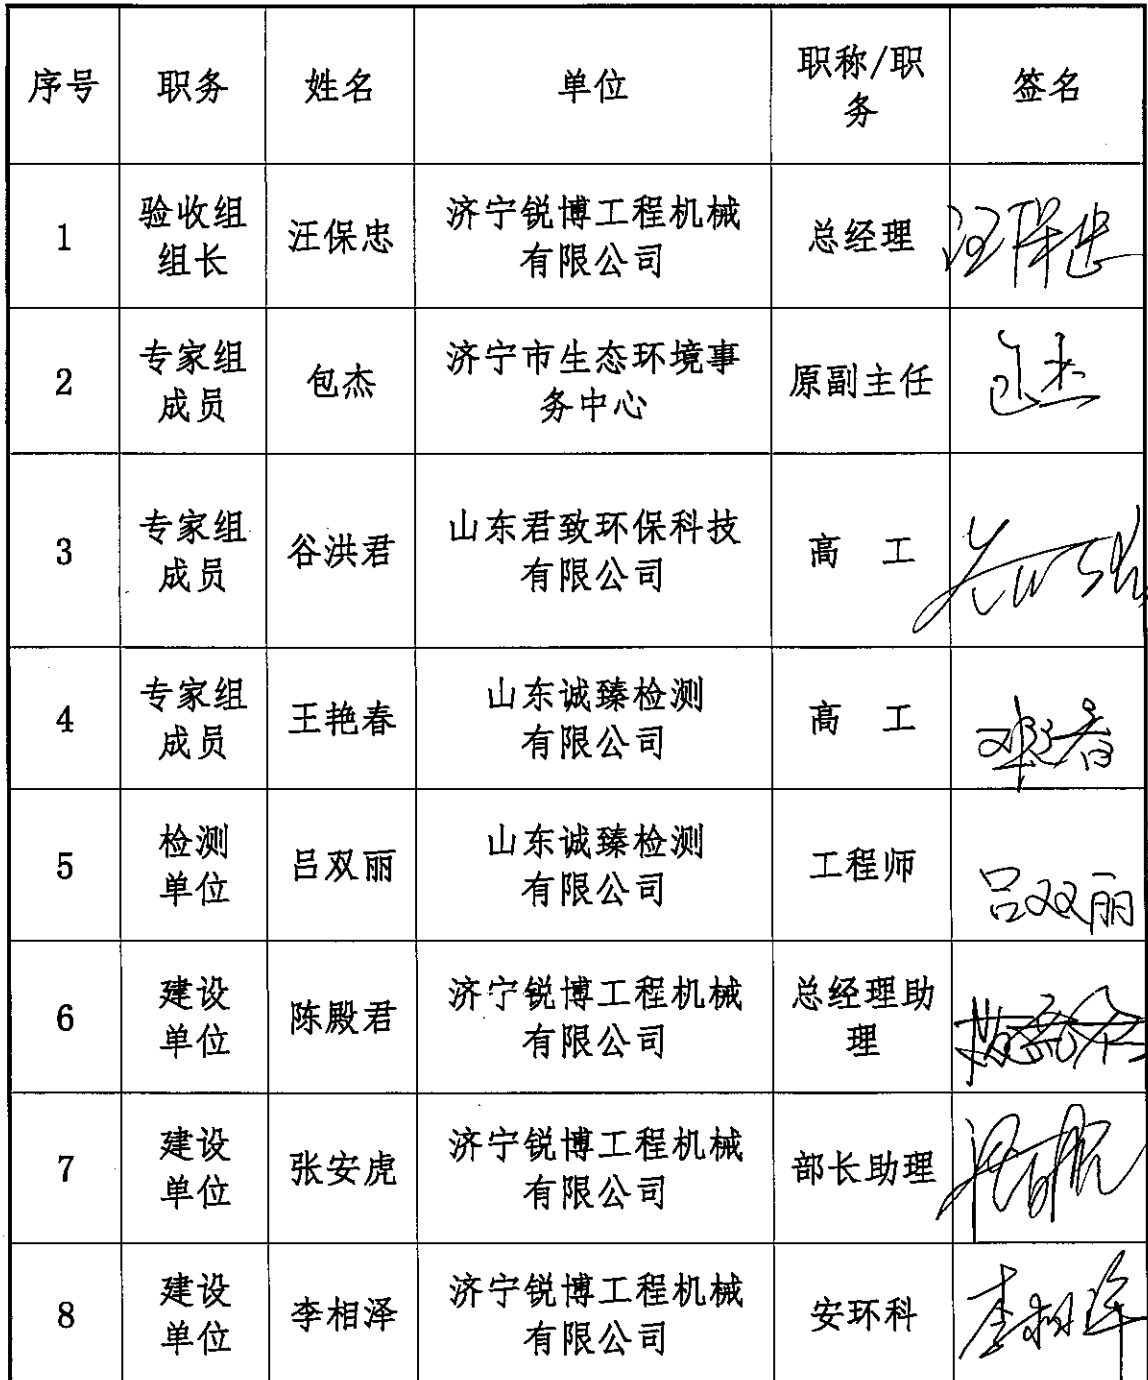 序号 职务 姓名 单位 职称/职务 签名
1 验收组组长 汪保忠 济宁锐博工程机械有限公司 总经理 汪保忠
2 专家组成员 包杰 济宁市生态环境事务中心 原副主任 包杰
3 专家组成员 谷洪君 山东君致环保科技有限公司 高 工
4 专家组成员 王艳春 山东诚臻检测有限公司 高 工 王艳春
5 检测单位 吕双丽 山东诚臻检测有限公司 工程师 吕双丽
6 建设单位 陈殿君 济宁锐博工程机械有限公司 总经理助理
7 建设单位 张安虎 济宁锐博工程机械有限公司 部长助理
8 建设单位 李相泽 济宁锐博工程机械有限公司 安环科 李相泽